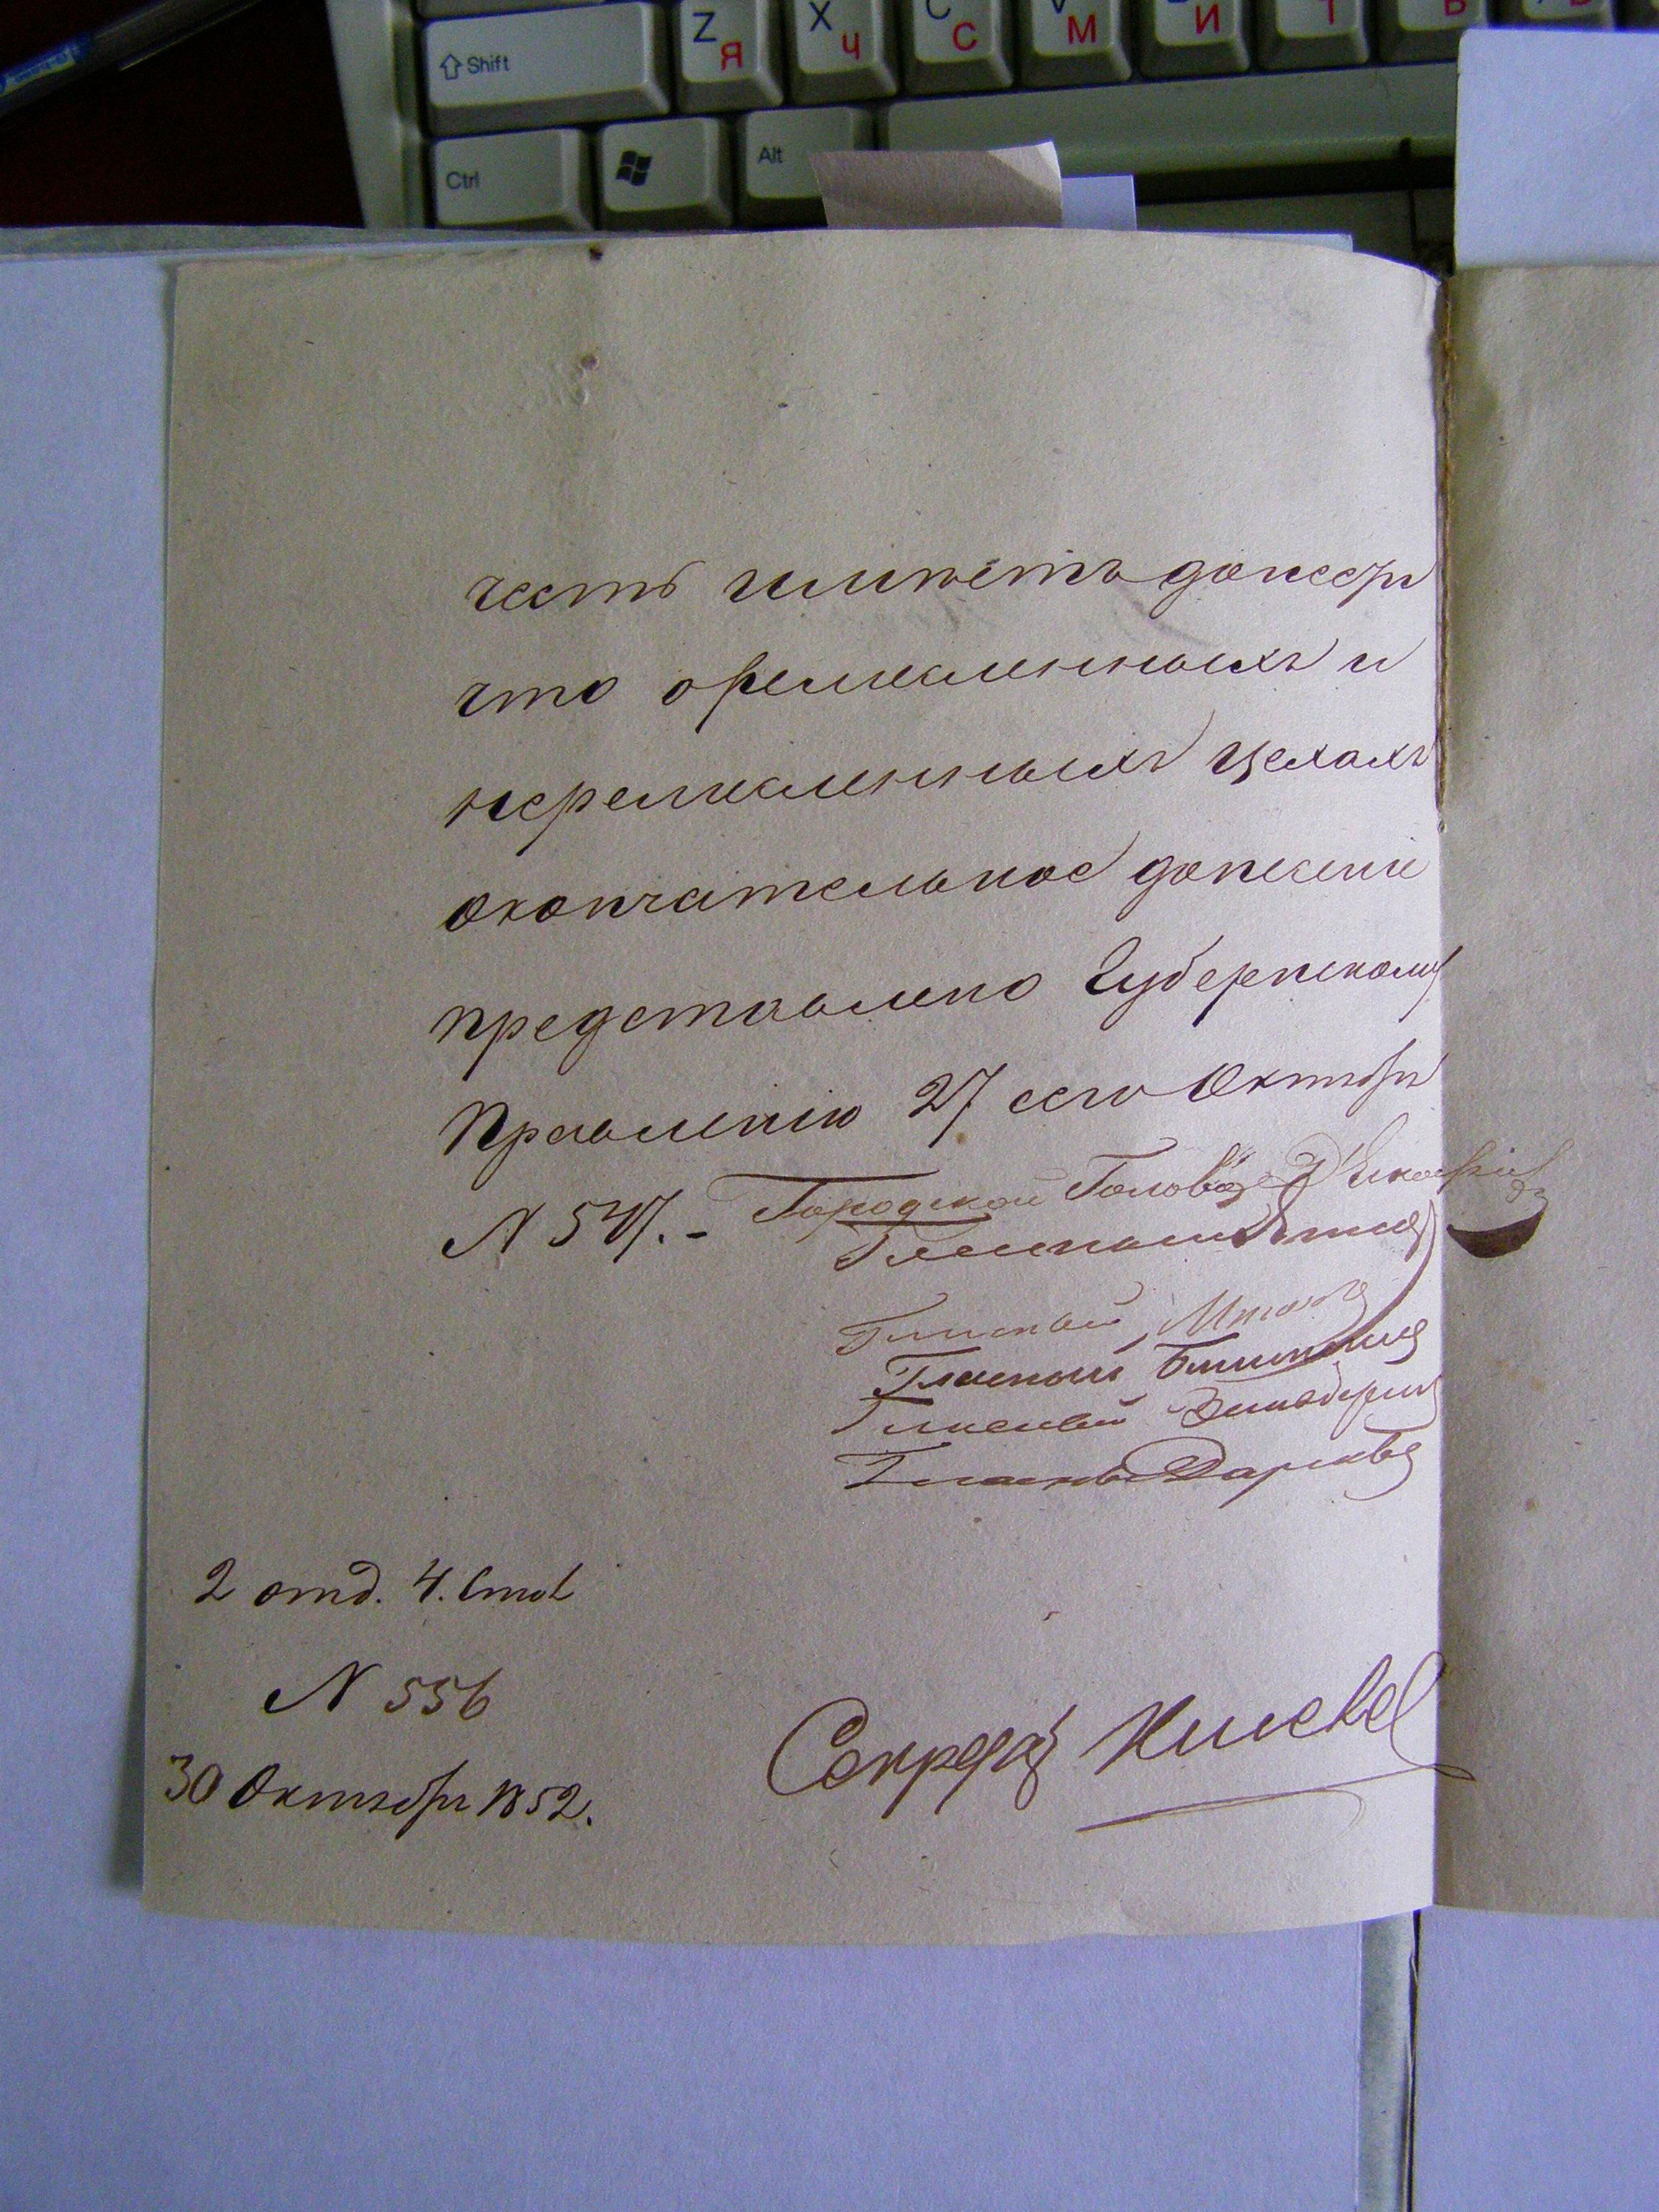 Shift
Z Я
X Ч
C С
М
И
Т
Ctrl
Alt
честь имѣетъ донести
что о ремесленныхъ и
неремесленныхъ цехахъ
окончательное донесеніе
представлено Губернскому
Правленію 27 сего Октября
N 547.-
Городской Голова
Гласный
Гласный
Гласный
Гласный
Гласный
2 отд. 4. Стол
N 556
30 Октября 1852.
Секретарь